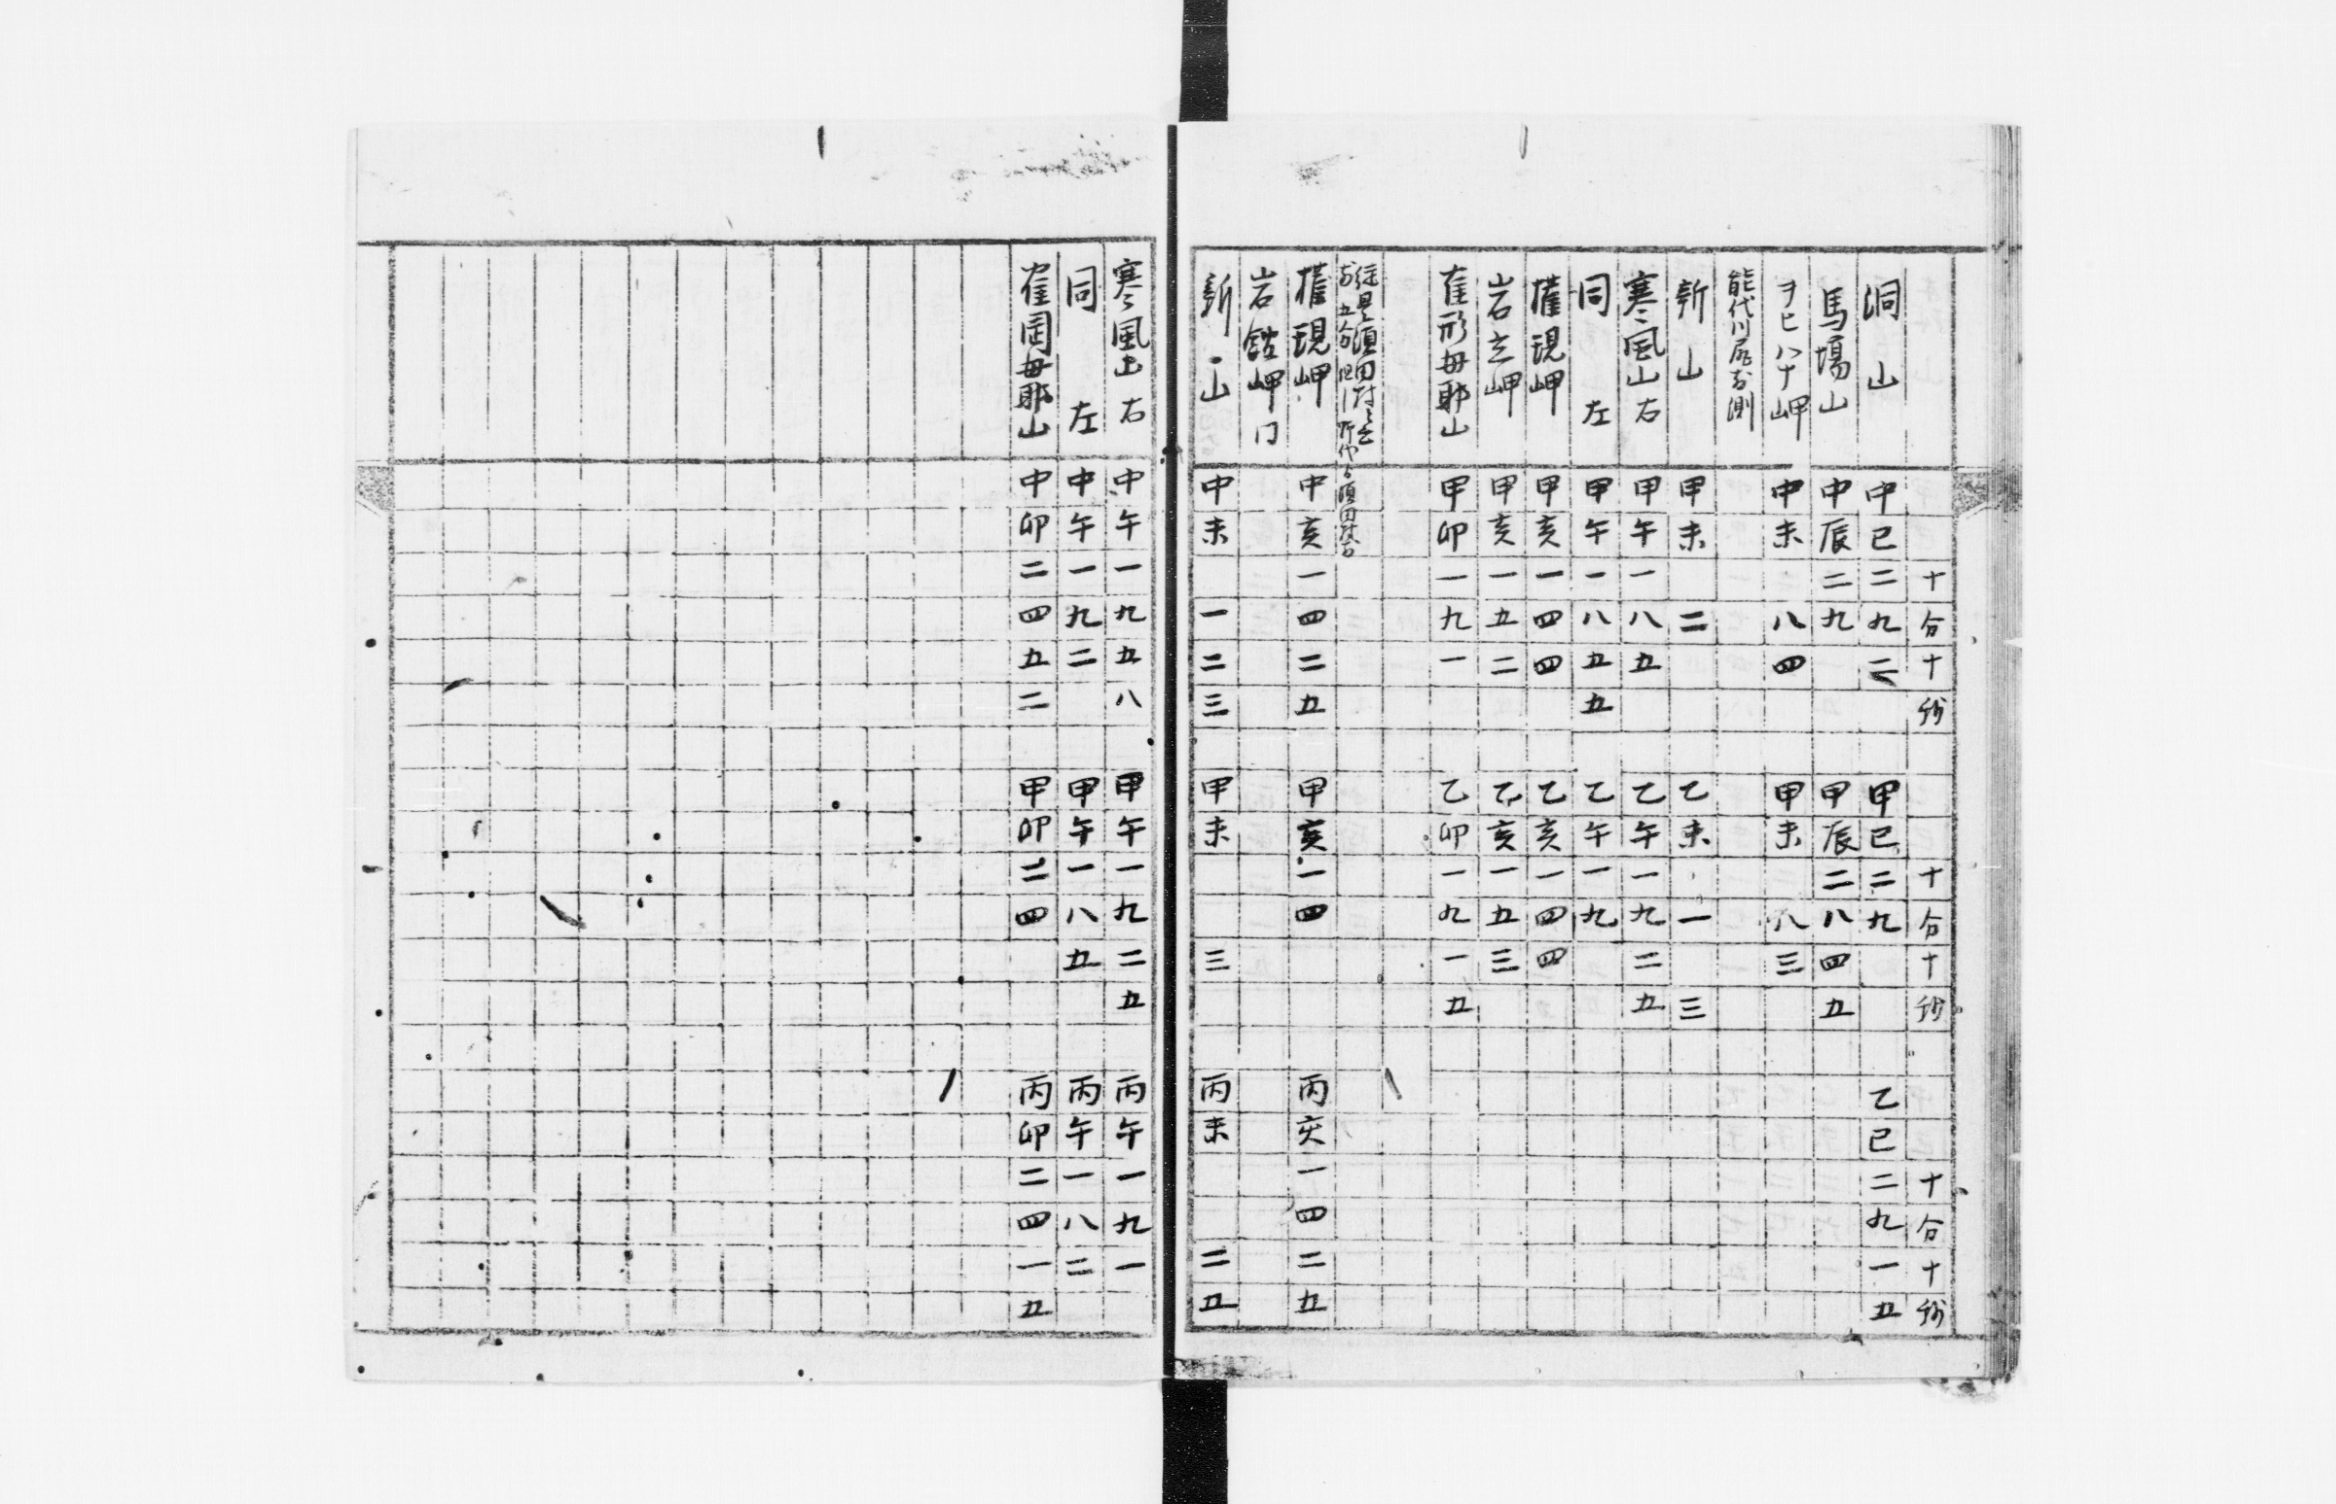 十分十秒 十分十秒 十分十秒
洞山 中巳二九二 甲巳二九 乙巳二九一五
馬場山 中辰二九 甲辰二八四五
ヲヒハナ岬 中未八四 甲未八三
能代川尻ゟ測
新山 甲未二 乙未一三
寒風山右 甲午一八五 乙午一九二五
同左 甲午一八五五 乙午一九
権現岬 甲亥一四四 乙亥一四四
岩立岬 甲亥一五二 乙亥一五三
甲卯一九一 乙卯一九一五
権現岬 中亥一四二五 甲亥一四 丙亥一四二五
岩舘岬
新山 中未一二三 甲未三 丙未二五
寒風山右 中午一九五八 甲午一九二五 丙午一九一
同左 中午一九二 甲午一八五 丙午一八二
中卯二四五二 甲卯二四 丙卯二四一五